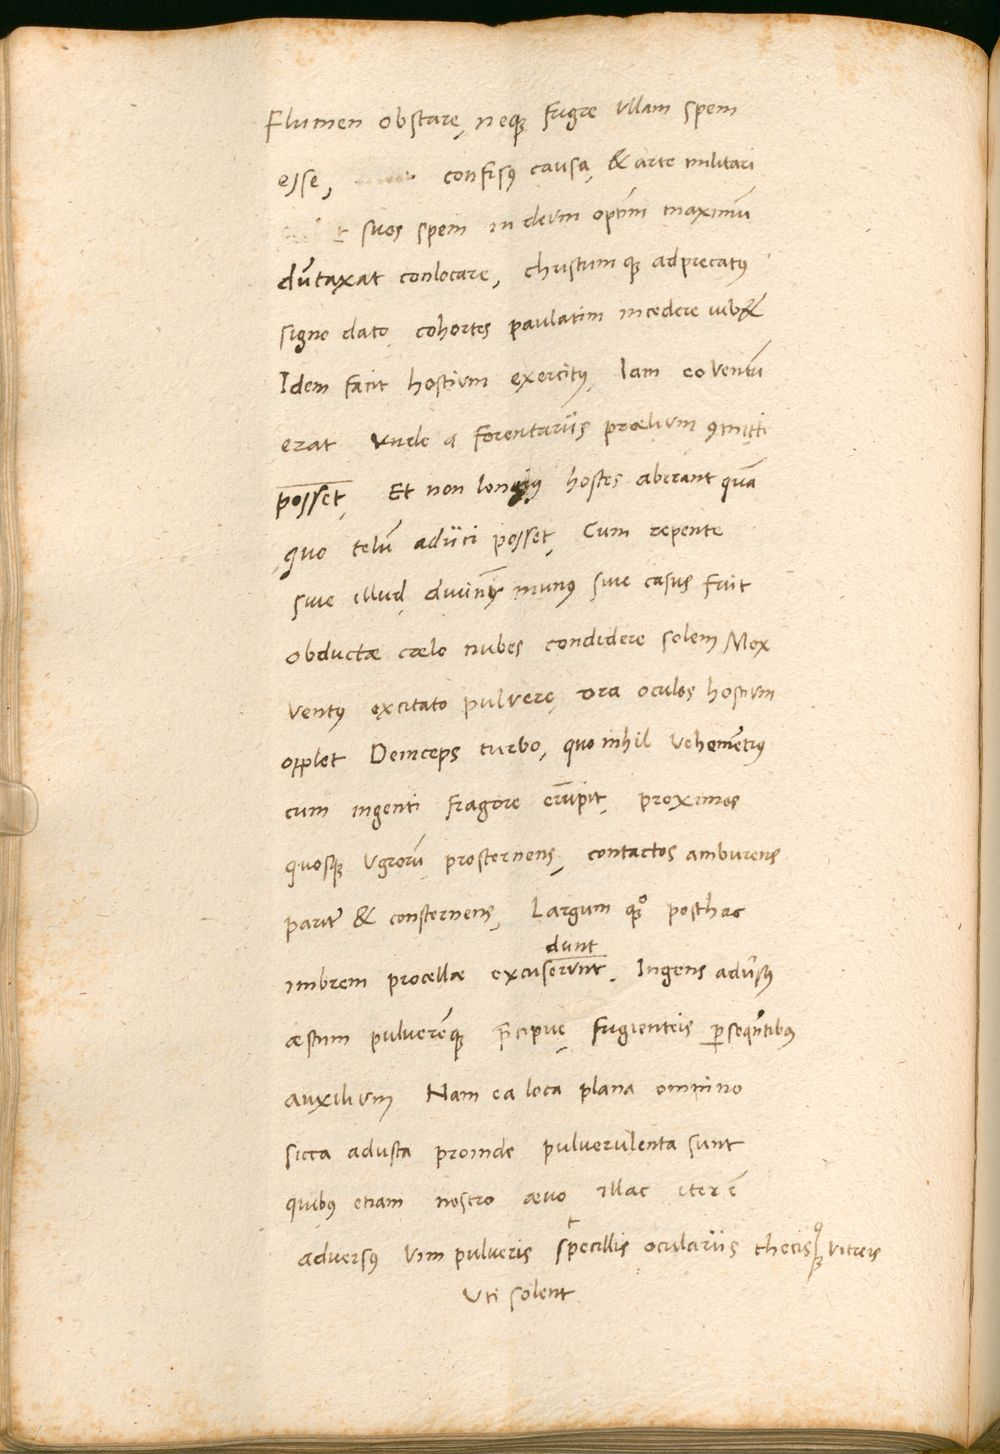 Flumen obstare, neq; fugæ ullam spem
esse, confisꝰ causa, & arte militari
suos spem in deum optim̄ maximū
dūtaxat conlocare, christum q; adprecatꝰ
signo dato cohortes paulatim incedere iub&
Idem facit hostium exercitꝰ, Iam eo ventū
erat unde a forentariis prælium ꝯmitti
posset, Et non longiꝰ hostes aberant quā
quo telū adiici posset, Cum repente
siue illud diuinū munꝰ siue casus fuit
obductæ cælo nubes condidere solem Mox
ventꝰ excitato pulvere, ora oculos hostium
opplet Deinceps turbo, quo nihil vehemētiꝰ
cum ingenti fragore erūpit, proximos
quosq; Vgrorū prosternens, contactos amburens
parit̄ & consternens, Largum q;o posthac
dunt
imbrem procellæ excuserunt. Ingens adūsꝰ
æstum pulverēq; p̄cipue, fugienteis ꝑseqn̄tibꝰ
auxilium Nam ea loca plana omnino
sicca adusta proinde pulverulenta sunt
quibꝰ etiam nostro ævo illac iter ē
adversꝰ vim pulveris specillis oculariis thecisq; vitreis
Uti solent